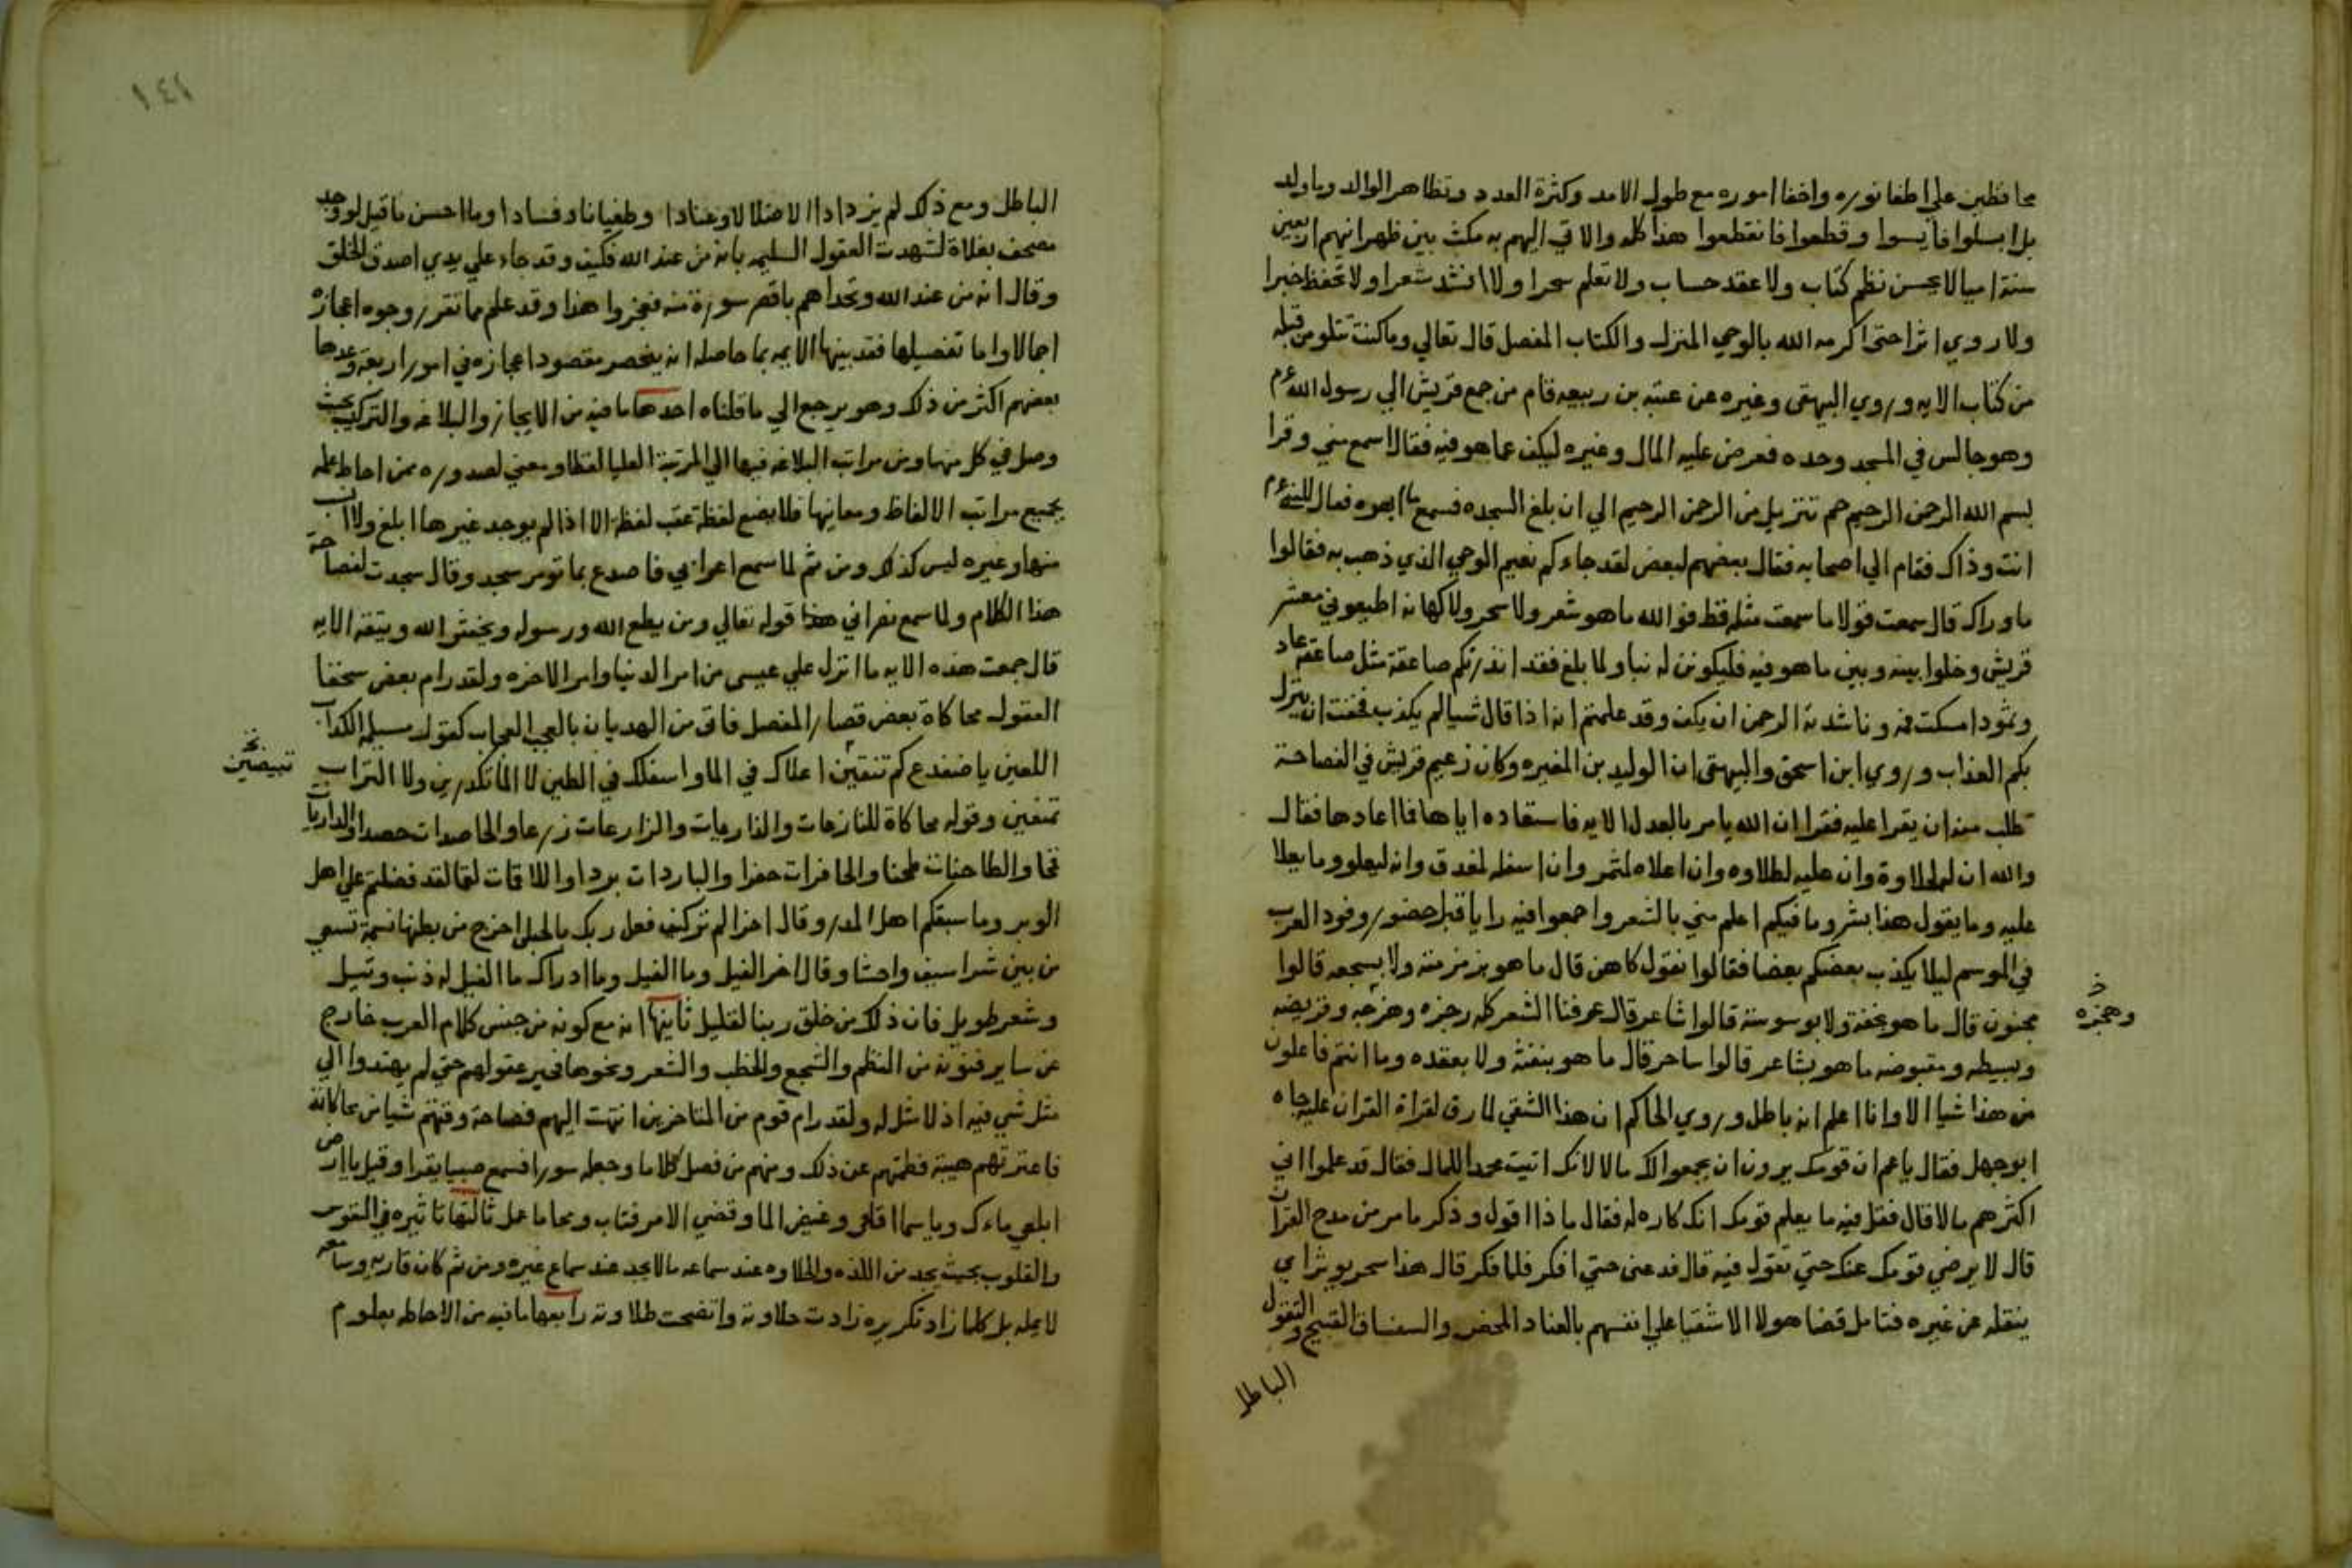 محافظين علي اطفا نوره واخفا اموره مع طول الامد وكثرة العدد وتظاهر الوالد وما ولد
بل ابسلوا فايسوا وقطعوا فانقطعوا هذا كله والاتي اليهم به مكث بين ظهرانيهم اربعين
سنة اميا لا يحسن نظم كتاب ولا عقد حساب ولا تعلم سحرا ولا انشد شعرا ولا تحفظ خبرا
ولا روي اثرا حتي اكرمه الله بالوحي المنزل والكتاب المفصل قال تعالي وما كنت تتلو من قبله
من كتاب الايه وروي البيهقي وغيره عن عتبه بن ربيعه قام من جمع قريش الي رسول الله
وهو جالس في المسجد وحده فعرض عليه المال وغيره ليكف عما هو فيه فقال اسمع مني وقرا
بسم الله الرحمن الرحيم حم تنزيل من الرحمن الرحيم الي ان بلغ السجده فسمع فقال
انت وذاك فقام الي اصحابه فقال بعضهم لبعض لقد جاءكم نعيم الوحي الذي ذهب به فقالوا
ما وراك قال سمعت قولا ما سمعت مثله قط فوالله ما هو شعر ولا سحر ولا كهانه اطيعوني معشر
قريش وخلوا بينه وبين ما هو فيه فليكونن له نبا ولما بلغ فقد انذرتكم صاعقة مثل صاعقة عاد
وثمود امسكت فمه وناشدته الرحمن ان يكف وقد علمتم انه اذا قال شيا لم يكذب فخفت ان ينزل
بكم العذاب وروي ابن اسحق والبيهقي ان الوليد بن المغيره وكان زعيم قريش في الفصاحة
طلب منه ان يقرا عليه فقرا ان الله يامر بالعدل الايه فاستعاده اياها فااعادها فقال
والله ان له لحلاوة وان عليه لطلاوه وان اعلاه لمثمر وان اسفله لمغدق وانه ليعلو وما يعلا
عليه وما يقول هذا بشر وما فيكم اعلم مني بالشعر واجمعوا فيه رايا قبل حضور وفود العرب
في الموسم ليلا يكذب بعضكم بعضا فقالوا نقول كاهن قال ما هو بزمزمته ولا بسجعه قالوا
مجنون قال ما هو بخنقه ولا بوسوسته قالوا شاعر قال عرفنا الشعر كله رجزه وهزجه وقريضه
وهجزه
وبسيطه ومقبوضه ما هو بشاعر قالوا ساحر قال ما هو بنفثه ولا بعقده وما انتم فاعلون
من هذا شيا الا وانا اعلم انه باطل وروي الحاكم ان هذا الشقي لما رق لقراة القران عليه جاه
ابو جهل فقال يا عم ان قومك يرون ان يجمعوا لك مالا لانك اتيت محمدا للمال فقال قد علموا اني
اكثرهم مالا قال فقل فيه ما يعلم قومك انك كاره له فقال ماذا اقول وذكر ما مر من مدح القران
قال لا يرضي قومك عنك حتي تقول فيه قال فدعني حتي افكر فلما فكر قال هذا سحر يوثر اي
ينقله عن غيره فتامل قضا هولا الاشقيا علي انفسهم بالعناد المحض والسفساف القبيح والتقول
الباطل
١٤١
الباطل ومع ذلك لم يزدادا الا ضلالا وعنادا وطغيانا وفسادا وما احسن ما قيل لو وجد
مصحف بفلاة لشهدت العقول السليمه بانه من عند الله فكيف وقد جاء علي يدي اصدق الخلق
وقال انه من عند الله وتحداهم باقصر سورة منه فعجزوا هذا وقد علم مما تقرر وجوه اعجازه
اجمالا واما تفصيلها فقد بينها الايمه بما حاصله انه ينحصر مقصود اعجازه في امور اربعة وعدها
بعضهم اكثر من ذلك وهو يرجع الي ما قلناه احدها ما فيه من الايجاز والبلاغه والتركيب بحيث
وصل في كل منها ومن مراتب البلاغه فيها الي المرتبة العليا لفظا ومعني لصدوره ممن احاط علمه
بجميع مراتب الالفاظ ومعانيها فلا يضع لفظة عقب لفظة الا اذا لم يوجد غيرها ابلغ ولا انسب
منها وغيره ليس كذلك ومن ثم لما سمع اعرابي فاصدع بما تومر سجد وقال سجدت لفصاحة
هذا الكلام ولما سمع نصراني قوله تعالي ومن يطع الله ورسوله ويخش الله ويتقه الايه
قال جمعت هذه الايه ما انزل علي عيسي من امر الدنيا وامر الاخره ولقد رام بعض سخفا
العقول محاكاة بعض قصار المفصل فاتي من الهذيان بالعجب العجاب كقول مسيلمه الكذاب
اللعين يا ضفدع كم تنقين اعلاك في الما واسفلك في الطين لا الما تكدرين ولا التراب
تبيضين
تمنعين وقوله محاكاة للنازعات والذاريات والزارعات زرعا والحاصدات حصدا والذاريات
قمحا والطاحنات طحنا والحافرات حفرا والباردات بردا واللاقمات لقما لقد فضلتم علي اهل
الوبر وما سبقكم اهل المدر وقال اخر الم تر كيف فعل ربك بالحبلي اخرج من بطنها نسمة تسعي
من بين شراسيف واحشا وقال اخر الفيل وما الفيل وما ادراك ما الفيل له ذنب وتيل
وشعر طويل فان ذلك من خلق ربنا لقليل ثانيها انه مع كونه من جنس كلام العرب خارج
عن ساير فنونه من النظم والسجع والخطب والشعر ونحوها فحير عقولهم حتي لم يهتدوا الي
مثل شي فيه اذ لا مثل له ولقد رام قوم من المتاخرين انتهت اليهم فصاحة وقتهم شيا من محاكاته
فاعترتهم هيبة قطعتهم عن ذلك ومنهم من فصل كلاما وجعله سورا فسمع صبيا يقرا وقيل يا ارض
ابلعي ماءك ويا سماا قلعي وغيض الما وقضي الامر فتاب ومحا ما عمل ثالثها تاثيره في النفوس
والقلوب بحيث يجد من اللذه والحلاوه عند سماعه ما لا يجد عند سماع غيره ومن ثم كان قاريه وسامعه
لا يمله بل كلما زاد تكريره زادت حلاوته واتضحت طلاوته رابعها ما فيه من الاحاطه بعلوم